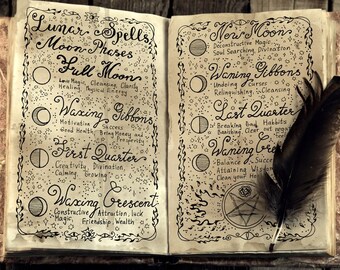 Lunar Spells,
Moon Phases
Full Moon
Love Magic, Clarity
Healing Physical Energy
Waxing Gibbons
Motivation Success
Good Health, Being Energy and
Prosperity
First Quarter
Creativity, Divination
Calming, Growing
Waxing Crescent
Constructive Attraction, luck
Magic, Friendship, Wealth
New Moon
Deconstructive Magic
Soul Searching Divination
Waning Gibbons
Undoing Curses
Relinquishing, Cleansing
Last Quarter
Breaking Bad Habbits
Banishing
Waning
Balance Success
Attaining
Clean your